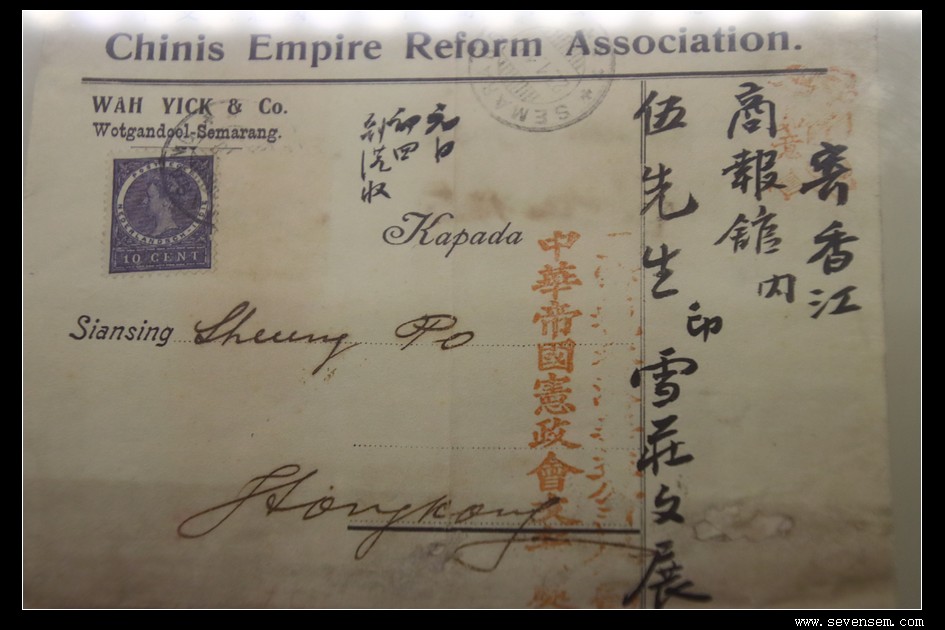 Chinis Empire Reform Association.
WAH YICK & Co.
Wotgandoel-Semarang.
10 CENT
SEMAR
元日
初四
到港收
Kapada
Siansing Sheung Po
Hongkong
中華帝國憲政會
寄香江
商報舘内
伍先生印雪莊文展
www.sevensem.com